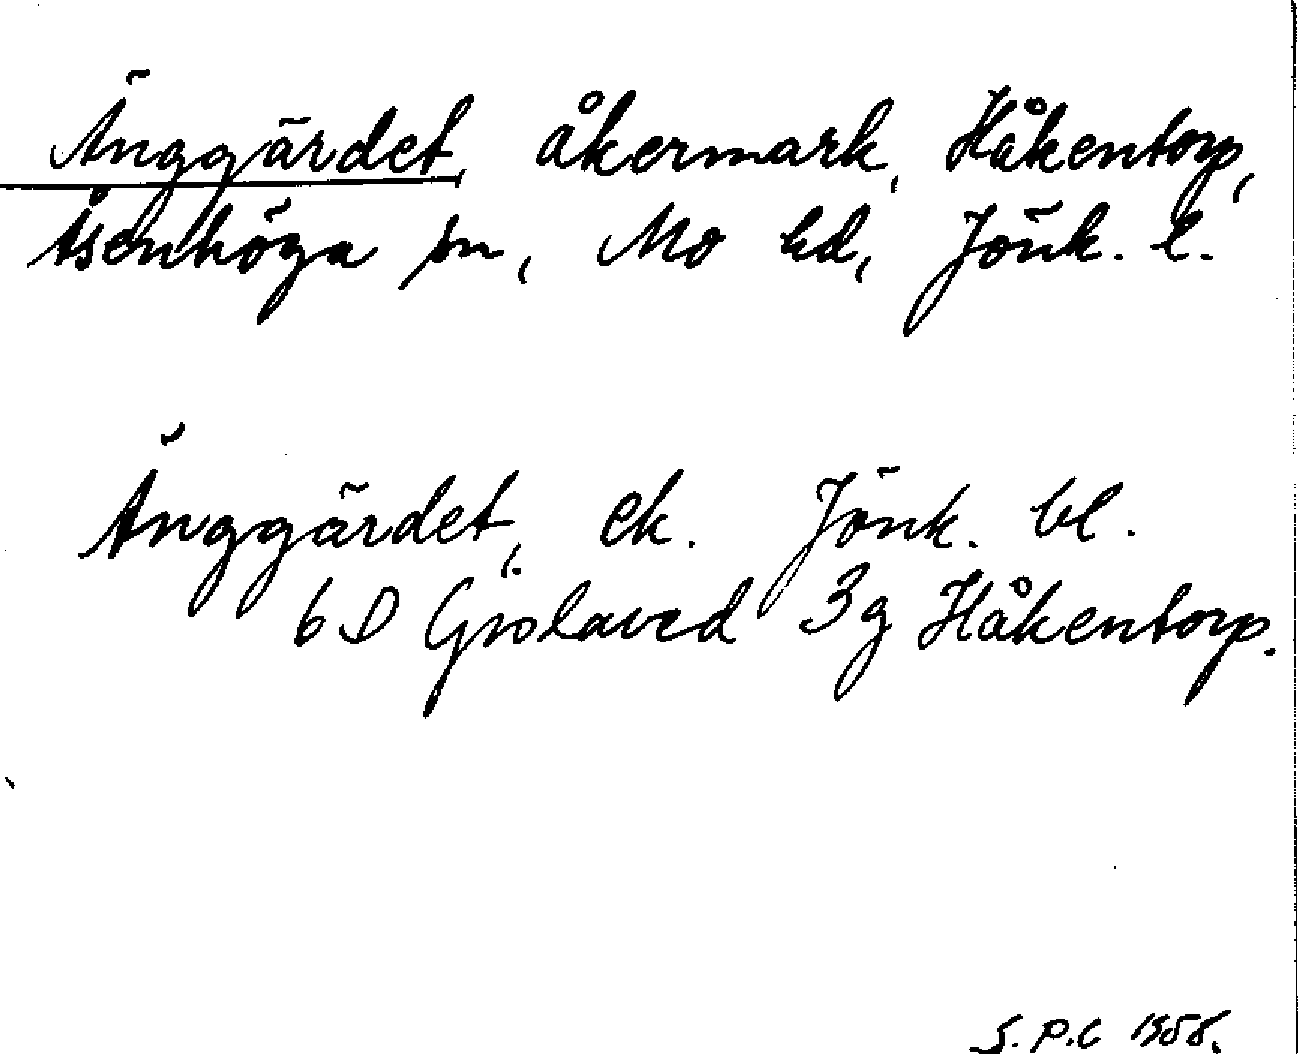 Änggärdet, åkermark, Håkentorp,
Åsenhöga sn, Mo hd, Jönk. l.
Änggärdet, ek. Jönk. bl.
6 D Gislaved 3g Håkentorp.
S.P.C